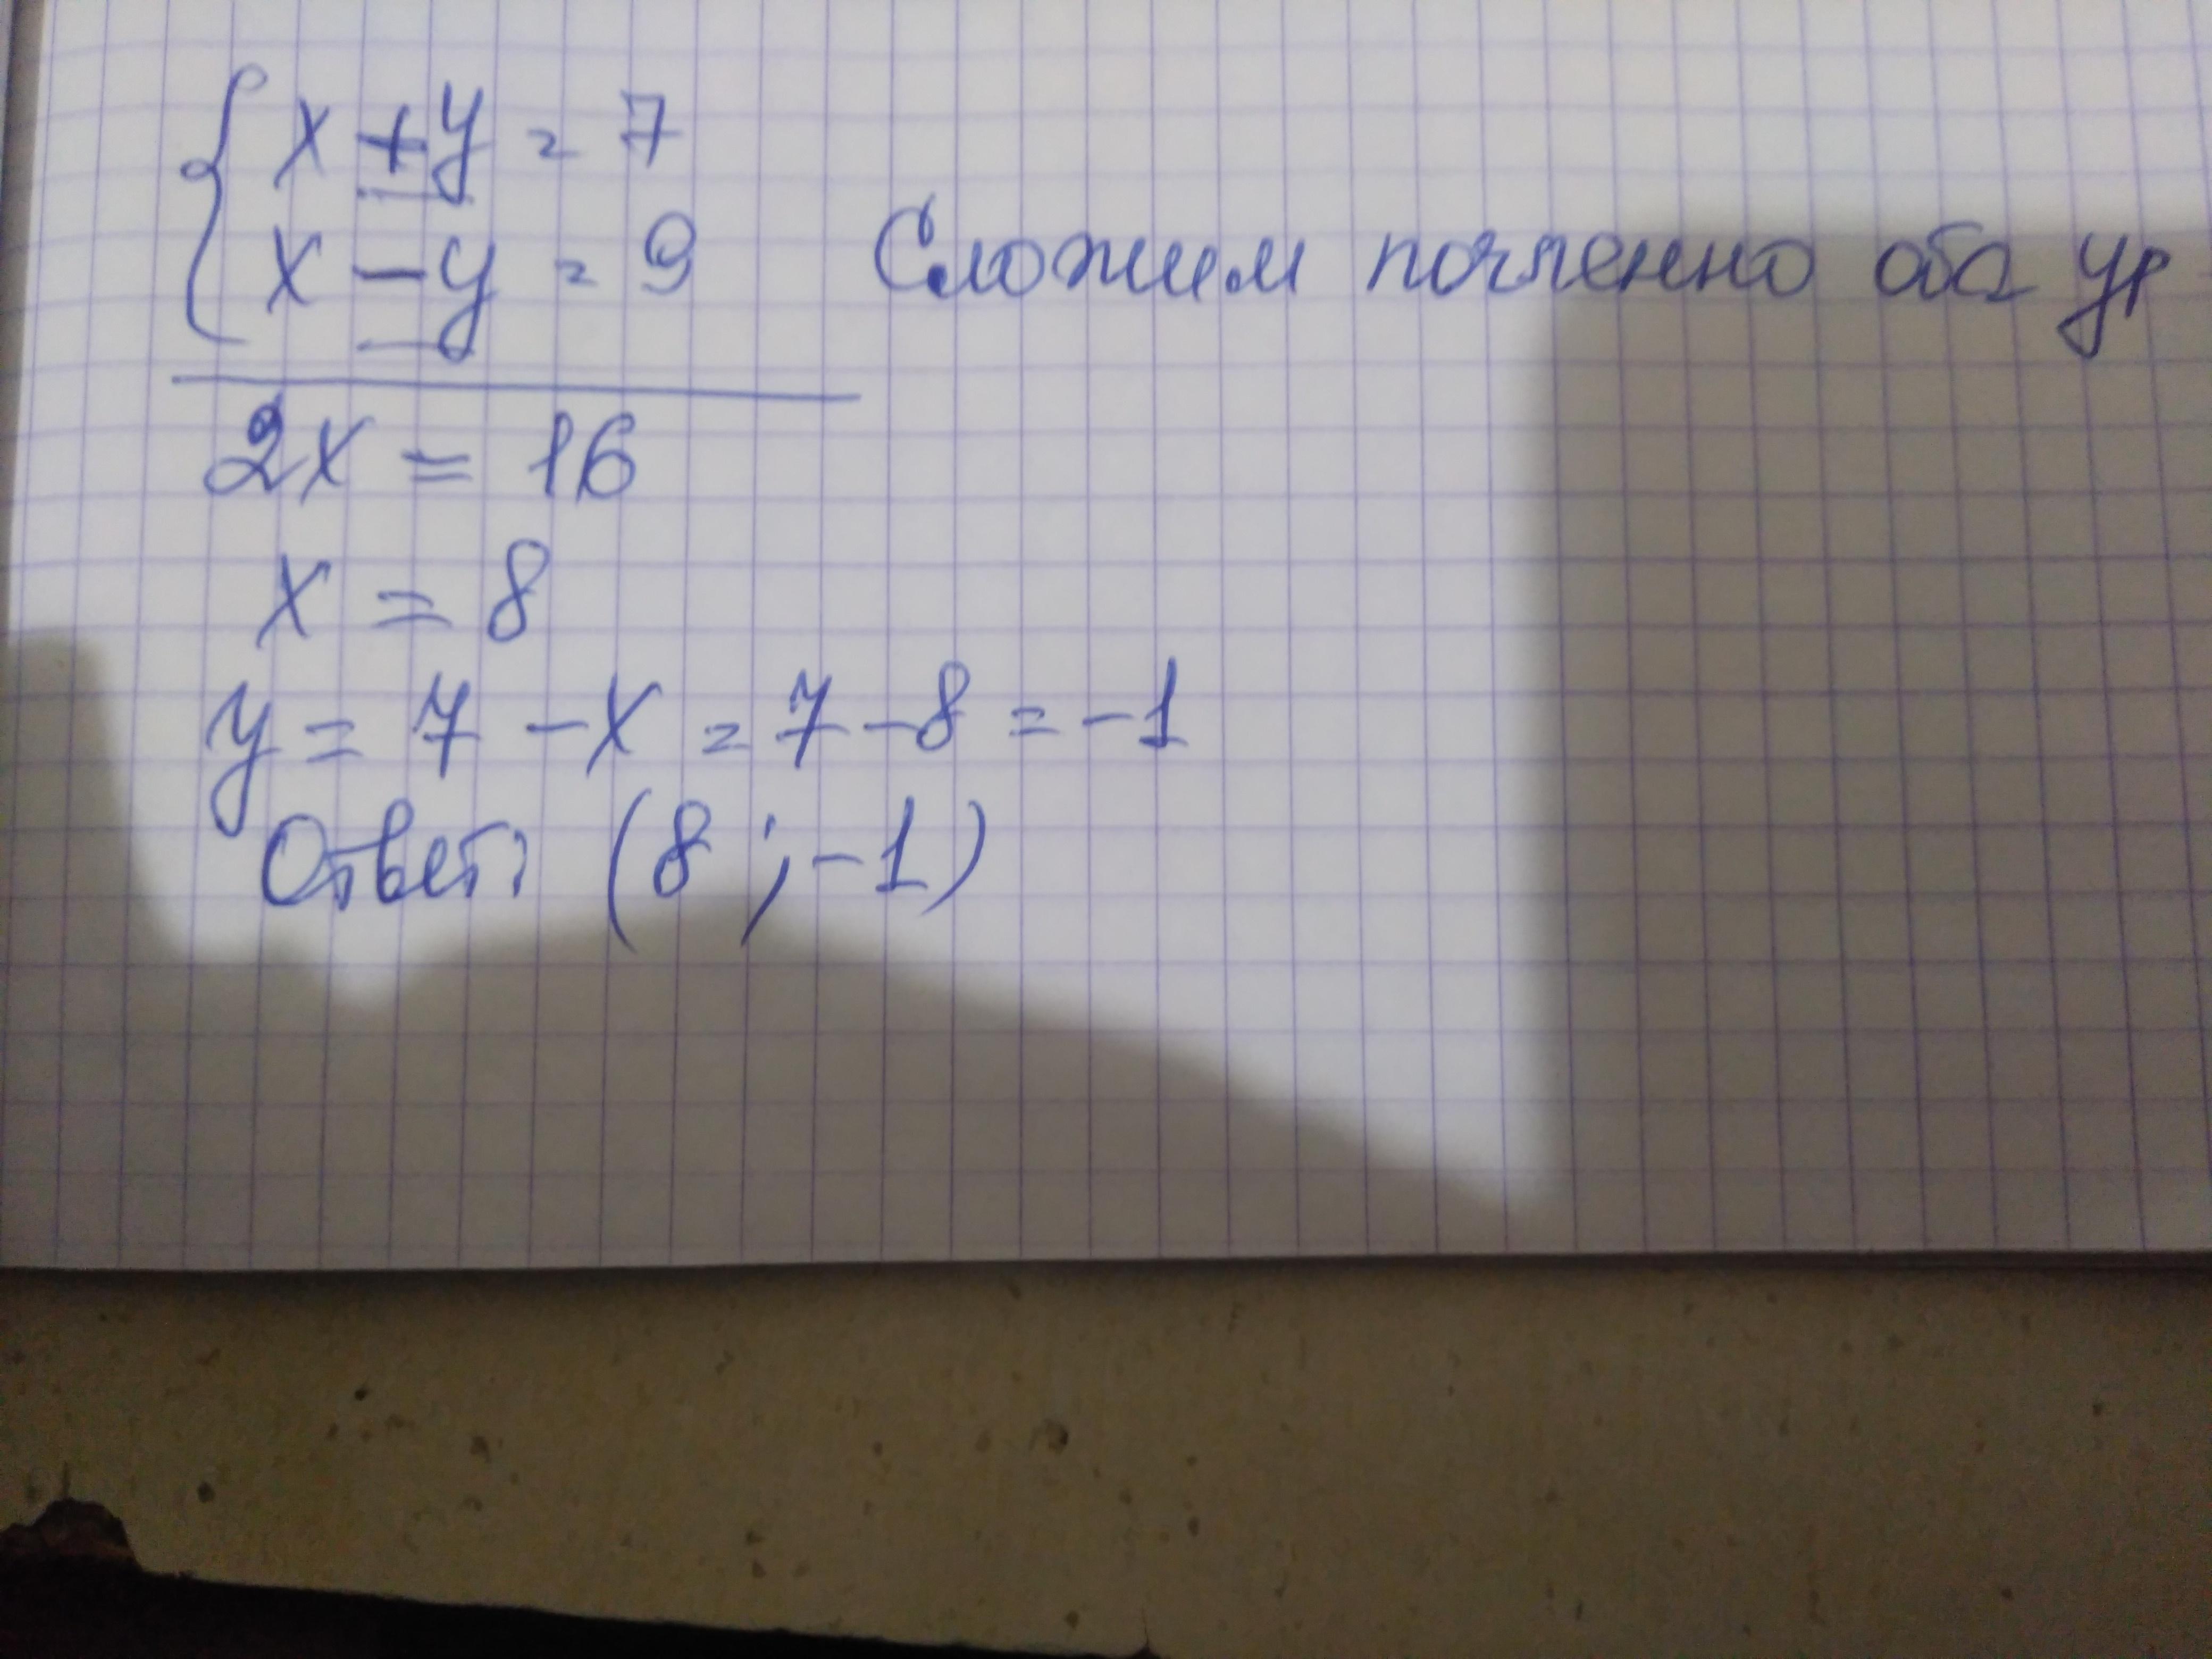 x + y = 7
x - y = 9 Сложим почленно оба ур
2x = 16
x = 8
y = 7 - x = 7 - 8 = -1
Ответ: (8 ; -1)